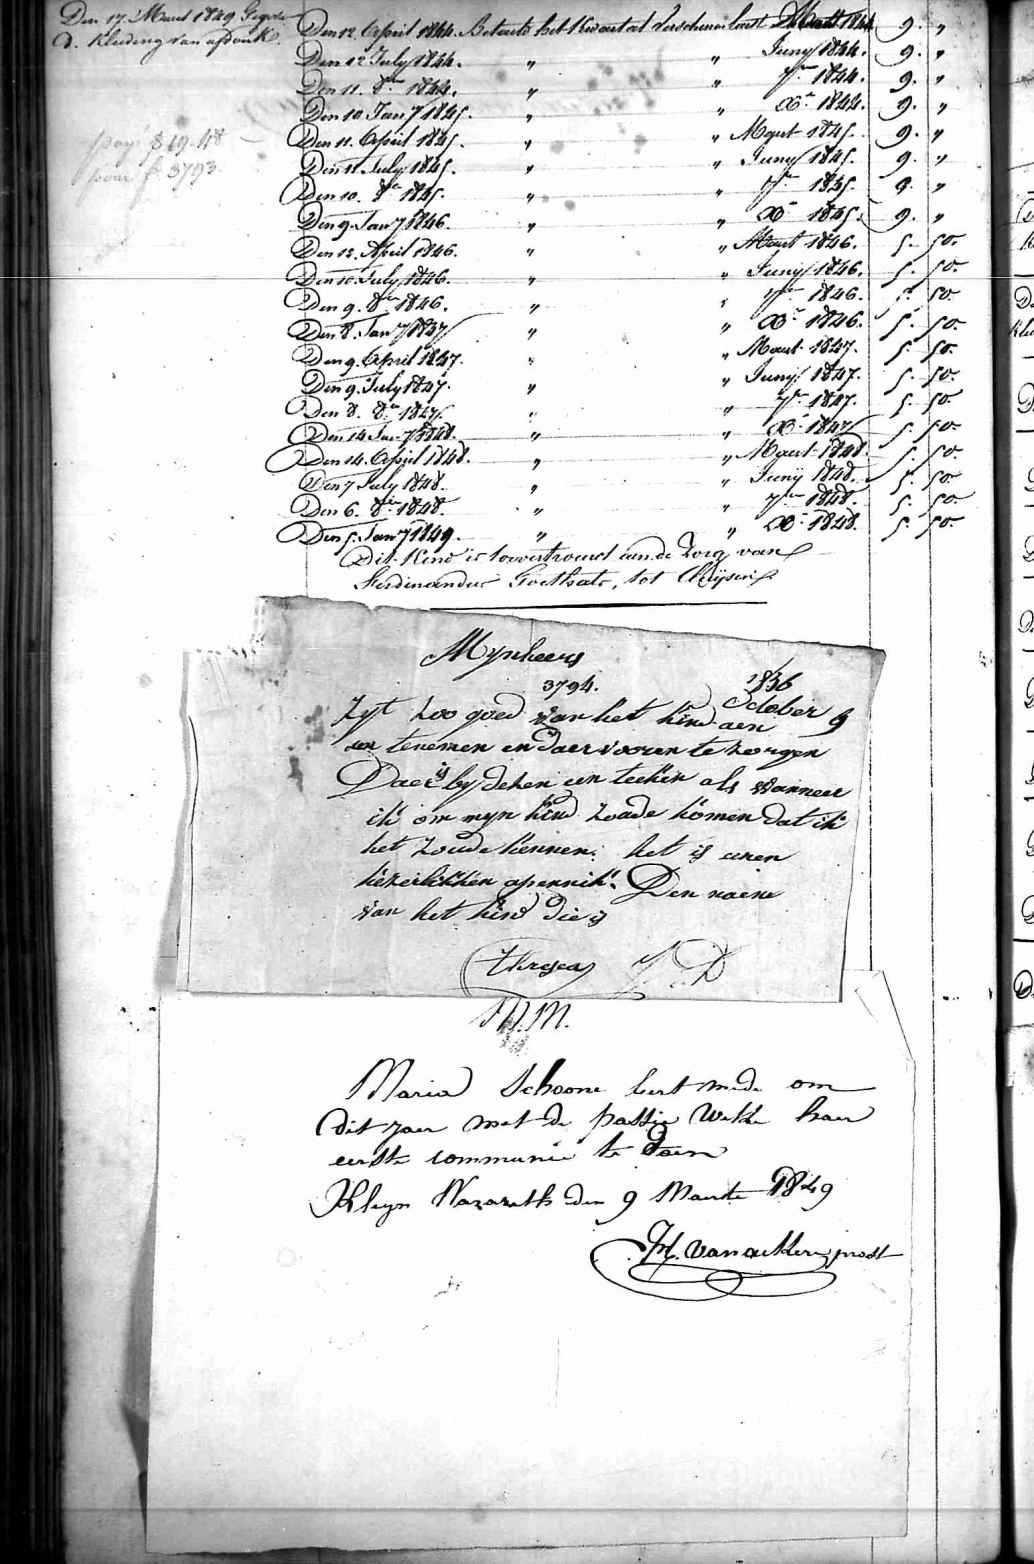 Den 17. Maart 1849 Gegeven
d. kleeding van
Den 12 April 1844. Betaald het kwartaal verschenen laast Maart 1844 9. "
Den 12 July 1844. " " Juny 1844. 9. "
Den 11. 8re 1844. " " 7re 1844. 9. "
Den 10 Janry 1845. " " Xre 1844. 9. "
Den 11. April 1845. " " Maert 1845. 9. "
Den 11 July 1845. " " Juny 1845. 9. "
Den 10. 8re 1845. " " 7re 1845. 9. "
Den 9. Janry 1846. " " Xre 1845. 9. "
Den 12. April 1846. " " Maart 1846. 5. 50.
Den 10. July 1846. " " Juny 1846. 5. 50.
Den 9. 8re 1846. " " 7re 1846. 5. 50.
Den 8. Janry 1847 " " Xre 1846. 5. 50.
Den 9. April 1847. " " Maart 1847. 5. 50.
Den 9. July 1847. " " Juny 1847. 5. 50.
Den 8. 8re 1847. " " 7re 1847. 5. 50.
Den 14 Janry 1848. " " Xre 1847 5. 50.
Den 14. April 1848. " " Maart 1848. 5. 50.
Den 7 July 1848. " " Juny 1848. 5. 50.
Den 6. 8re 1848. " " 7re 1848. 5. 50.
Den 5. Janry 1849. " " Xre 1848. 5. 50
Dit kind is toevertrouwd aan de Zorg van
Ferdinandus Goethals, tot
pag. 19. 48
f. 3793
Mynheers
3794. 1836
October 9
Zyt zoo goed van het kind aen
aen tenemen en daer vooren te zorgen
Daer is by dezen een teeken als wanneer
ik om myn kind zoude komen dat ik
het zoude kennen. het is eenen
kezerlikken apennik. Den naeme
van het kind die is
theresea J D
M.M.
Maria Schoone leert mede om
dit jaer met de passie weke haer
eerste communie te doen
Kleyn Nazareth den 9 Maerte 1849
van ackere prost